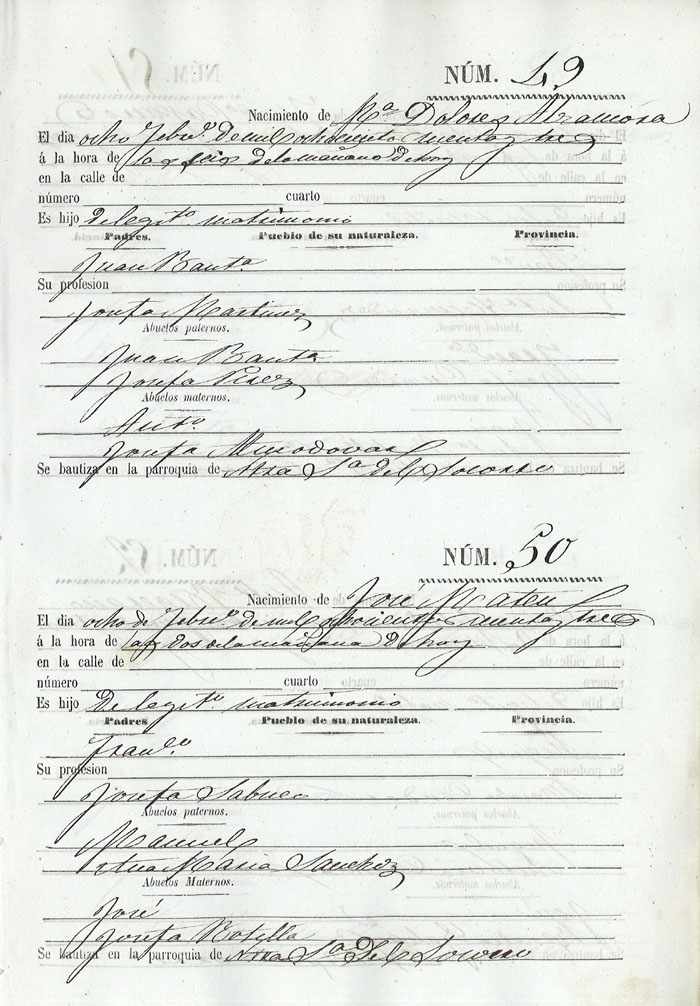 NÚM. 49
Nacimiento de Mª Dolores Alzamora
El dia ocho Febrº de mil ochocientos y tres
á la hora de las seis de la mañana de hoy
en la calle de
número cuarto
Es hijo De legitº matrimonio
Padres. Pueblo de su naturaleza. Provincia.
Juan Bautª
Su profesion
Josefa Martinez
Abuelos paternos.
Juan Bautª
Josefa Perez
Abuelos maternos.
Antº
Josefa Almodovar
Se bautiza en la parroquia de Ntra Sª del Socorro
NÚM. 50
Nacimiento de José Mateu
El dia ocho de Febrº de mil ochocientos y tres
á la hora de las dos de la mañana de hoy
en la calle de
número cuarto
Es hijo De legitº matrimonio
Padres Pueblo de su naturaleza. Provincia.
Franº
Su profesion
Josefa Sabuco
Abuelos paternos.
Manuel
Ana Maria Sanchez
Abuelos Maternos.
José
Josefa Botella
Se bautiza en la parroquia de Ntra Sª Del Socorro